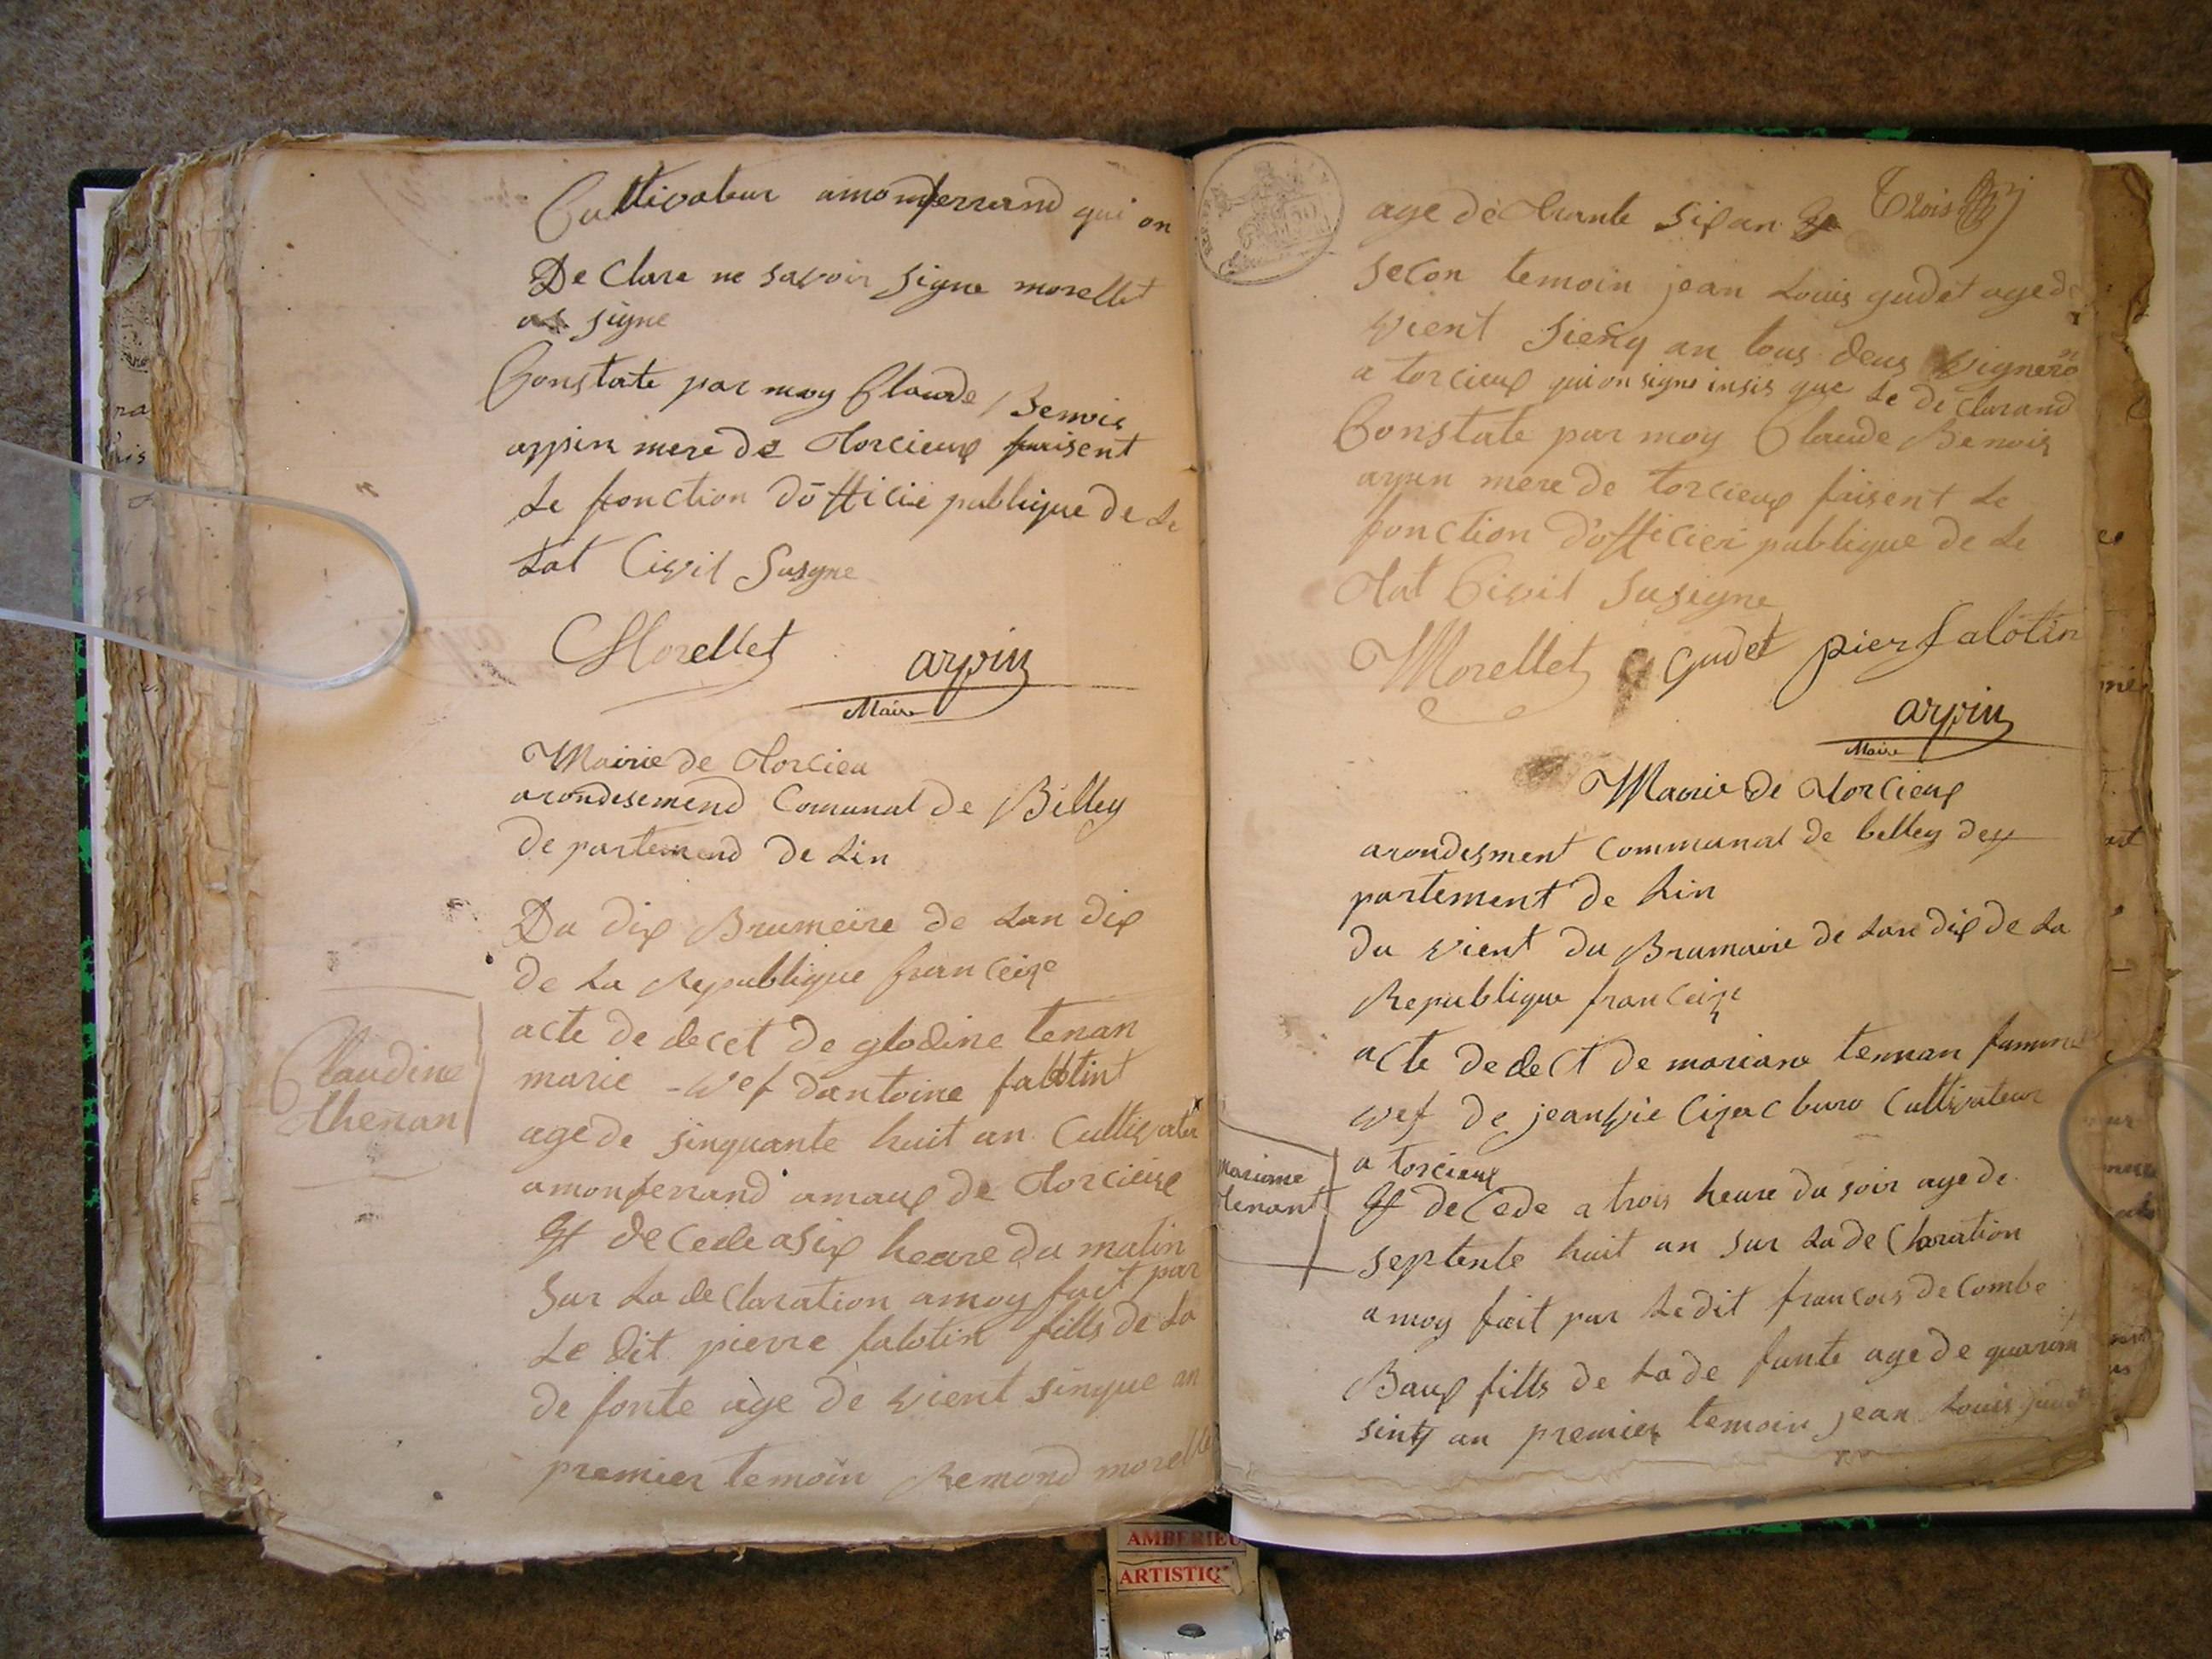 Cultivateur amonferrand qui on
De Clare ne savoir signe morellet
as signe
Constate par moy Claude Benois
arpin mere de Torcieux faisent
Le fonction d'officié publique de Le
tat Civil Susgne
Morellet arpin
Maire
Mairie de Torcieu
arondesemend Comunal de Billey
De partemend De Lin
Du dix Brumeire de Lan dix
de La Republique franceize
acte de decet De glodine tenan
marie - vef dantoine falotint
age de sinquante huit an Cultivater
amonferrand amaux de Torcieux
Et decede a six heure du matin
Sur La de Claration amoy fait par
Le dit pierre falotin fills de La
de fonte age de vient sinque an
premier temoin Remond morellet
Claudine
thenan
age de trante six an Et
Trois
Secon temoin jean Louis gudet age de
vient sienq an tous deus vigneron
a torcieux qui on signe insis que Le de Clarand
Constate par moy Claude Benois
arpin mere de torcieux faisent Le
fonction d'officier publique de Le
tat Civil Susigne
Morellet gudet pier falotin
arpin
Maire
Mairie de Torcieux
arondesment Communal de belley de
partement de Lin
du vient du Brumaire de Lan dix de La
Republique franceize
acte de dect de mariane tennan famme
vef de jean Cultivateur
a torcieux
Et deCede a trois heure du soir age de
septente huit an sur La de Claration
a moy fait par Ledit francois de Combe
Baux fills de La de funte age de quarant
sinq an premier temoin jean Louis gudet
Mariane
tenant
AMBERIEU
ARTISTIQ